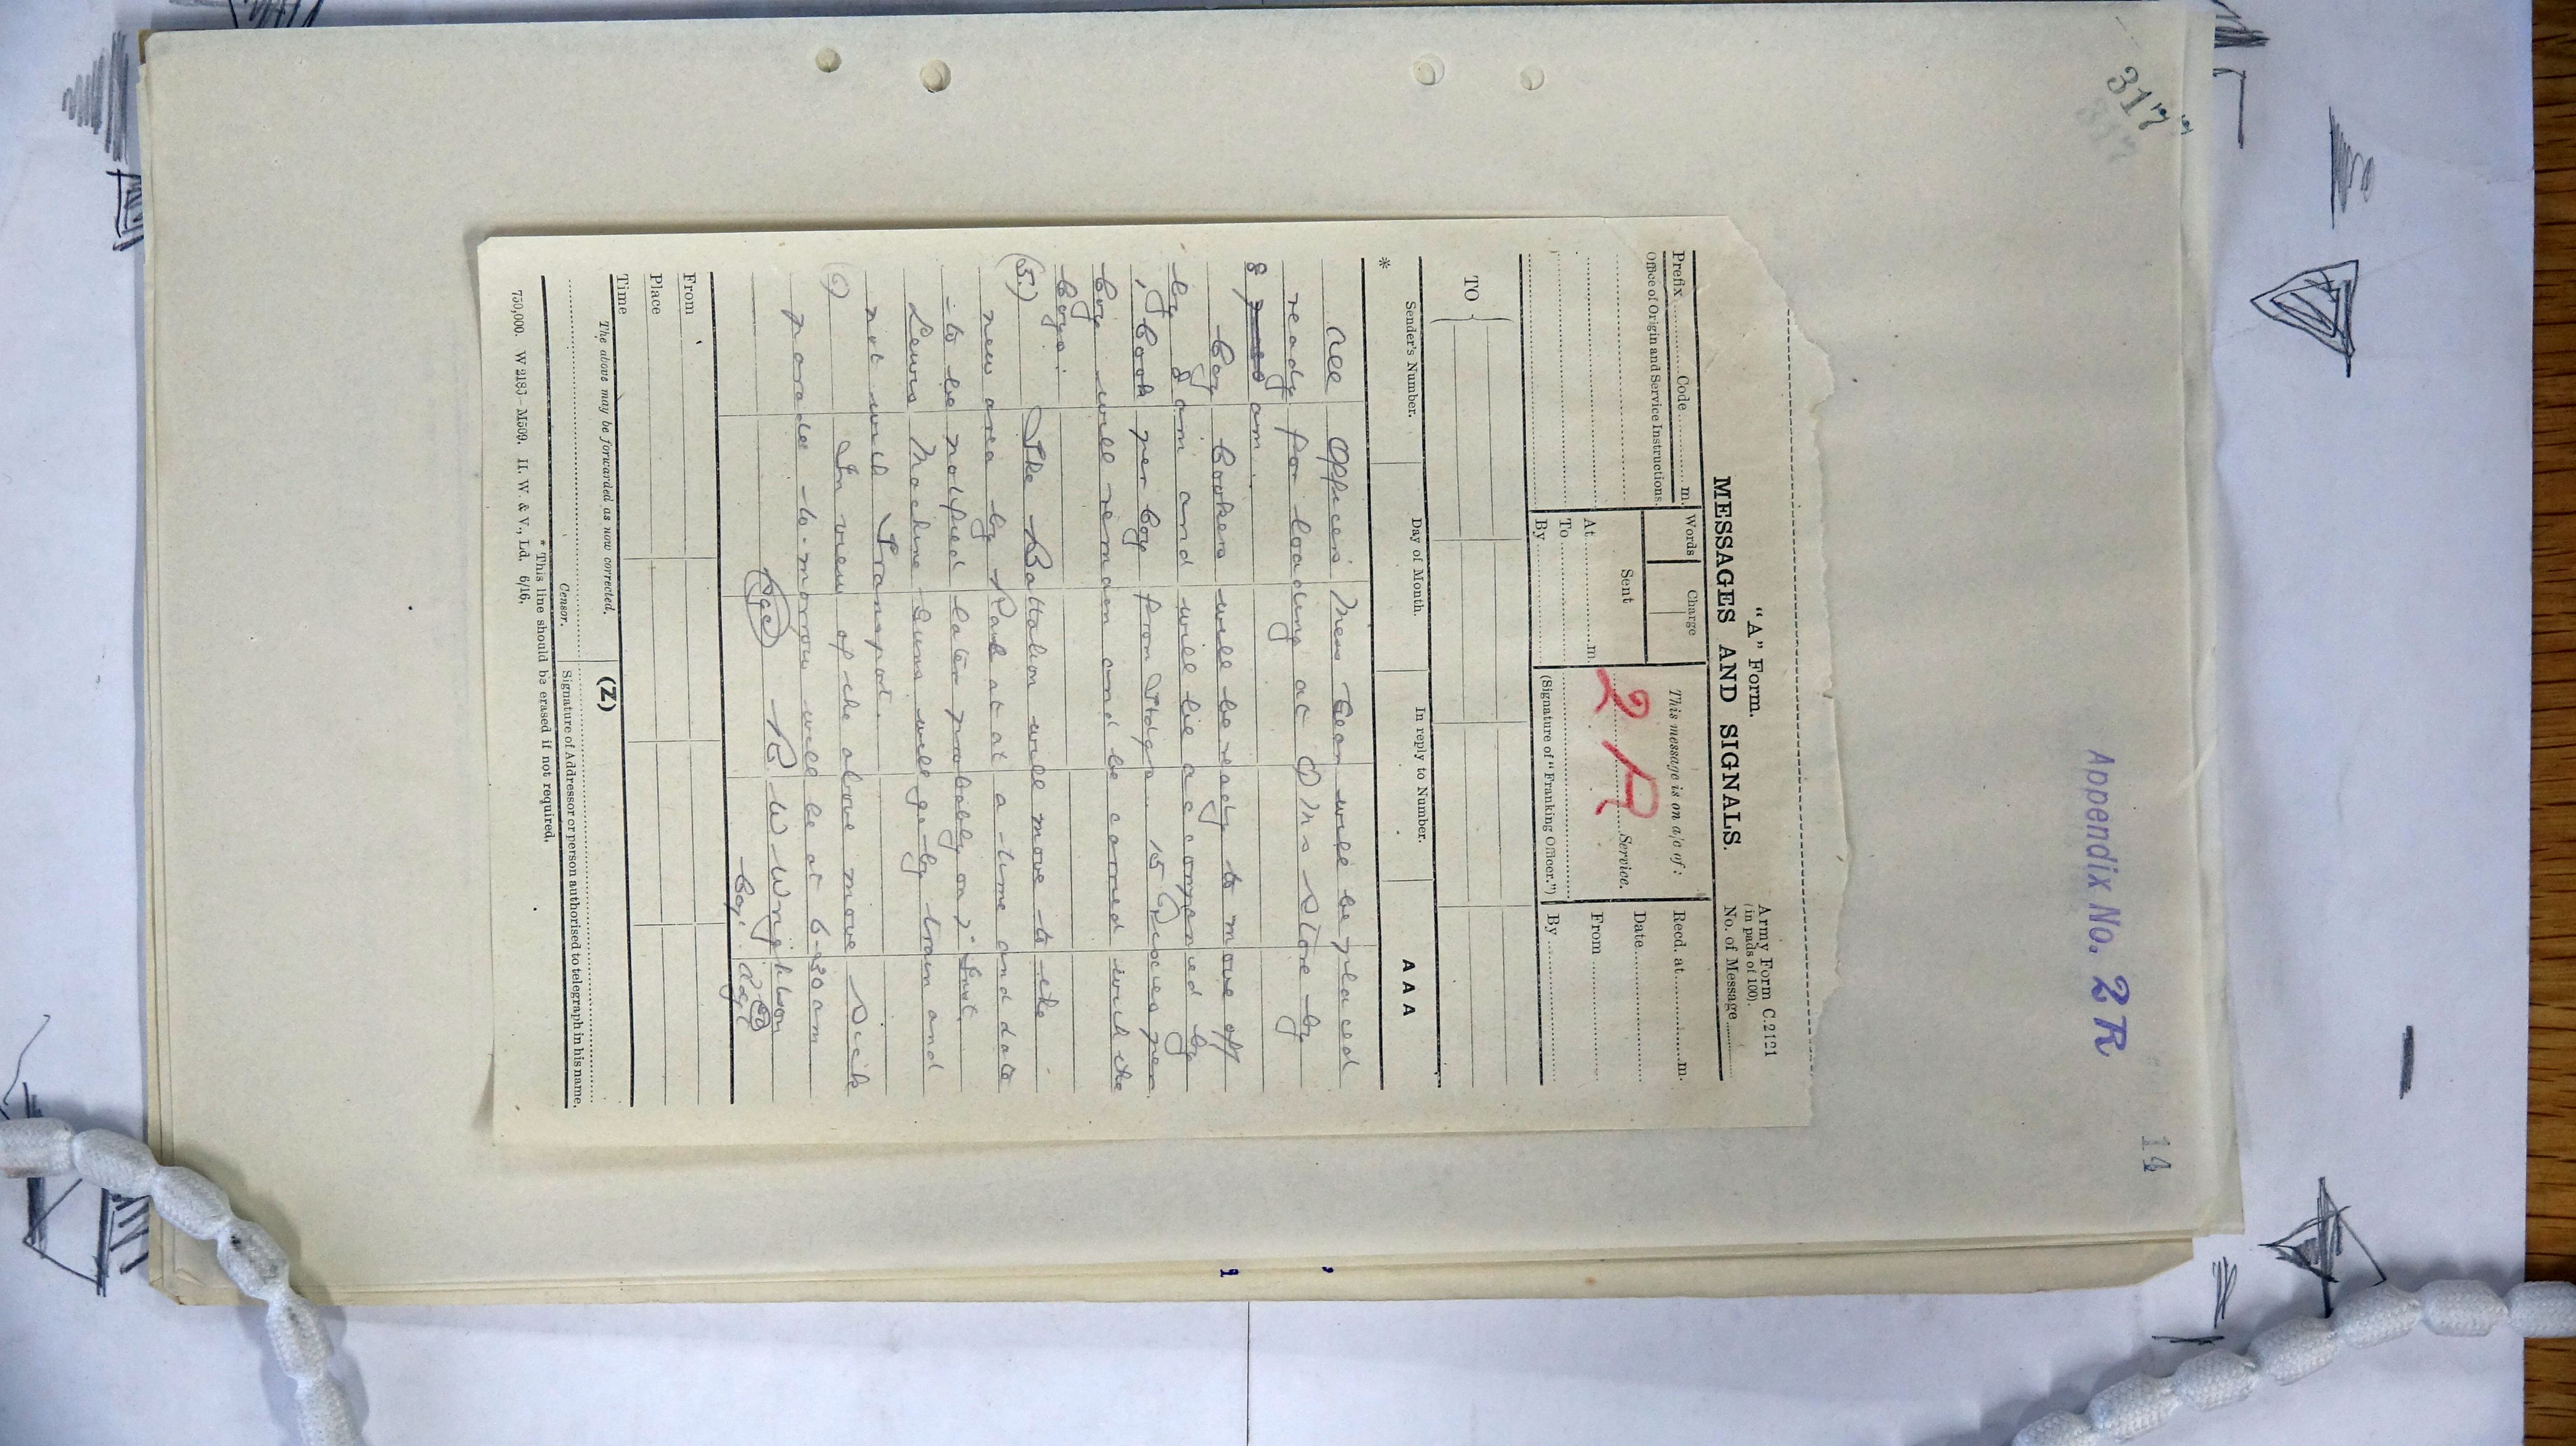 317
Appendix No. 2R
14
"A" Form.
Army Form C.2121
(in pads of 100).
MESSAGES AND SIGNALS.
No. of Message
Prefix Code m.
Words
Charge
This message is on a/c of:
Recd. at m.
Office of Origin and Service Instructions.
Sent
2R
Service.
Date
At m.
From
To
By
(Signature of "Franking Officer.")
By
TO
Sender's Number.
Day of Month.
In reply to Number.
AAA
*
All Officers Mess Gear will be placed
ready for loading at QMs Store by
8 am.
Coy Cookers will be ready to move off
by 9 am and will be accompanied by
1 Cook per Coy from Stdgs. 15 Dixies per
Coy will remain and be carried with the
Coys.
(5.) The Battalion will move to the
new area by Rail at at a time and date
to be notified later probably on 2nd Inst.
Lewis Machine Guns will go by train and
not with Transport.
(6) In view of the above move Sick
parade to-morrow will be at 6-30 am
R W Wrightson
Coy. Adjt
From
Place
Time
The above may be forwarded as now corrected.
(Z)
Censor.
Signature of Addressor or person authorised to telegraph in his name.
* This line should be erased if not required.
750,000. W 2183—M509. H. W. & V., Ld. 6/16.